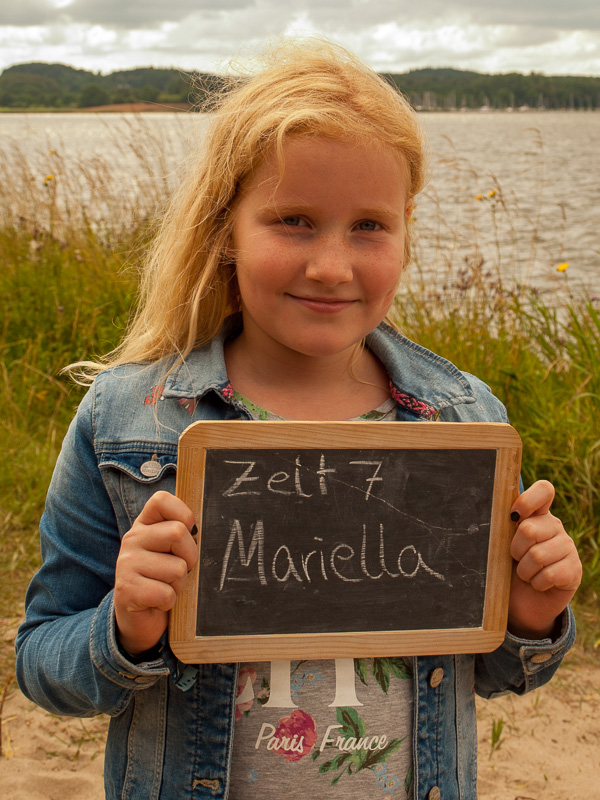 Zelt 7
Mariella
Paris France